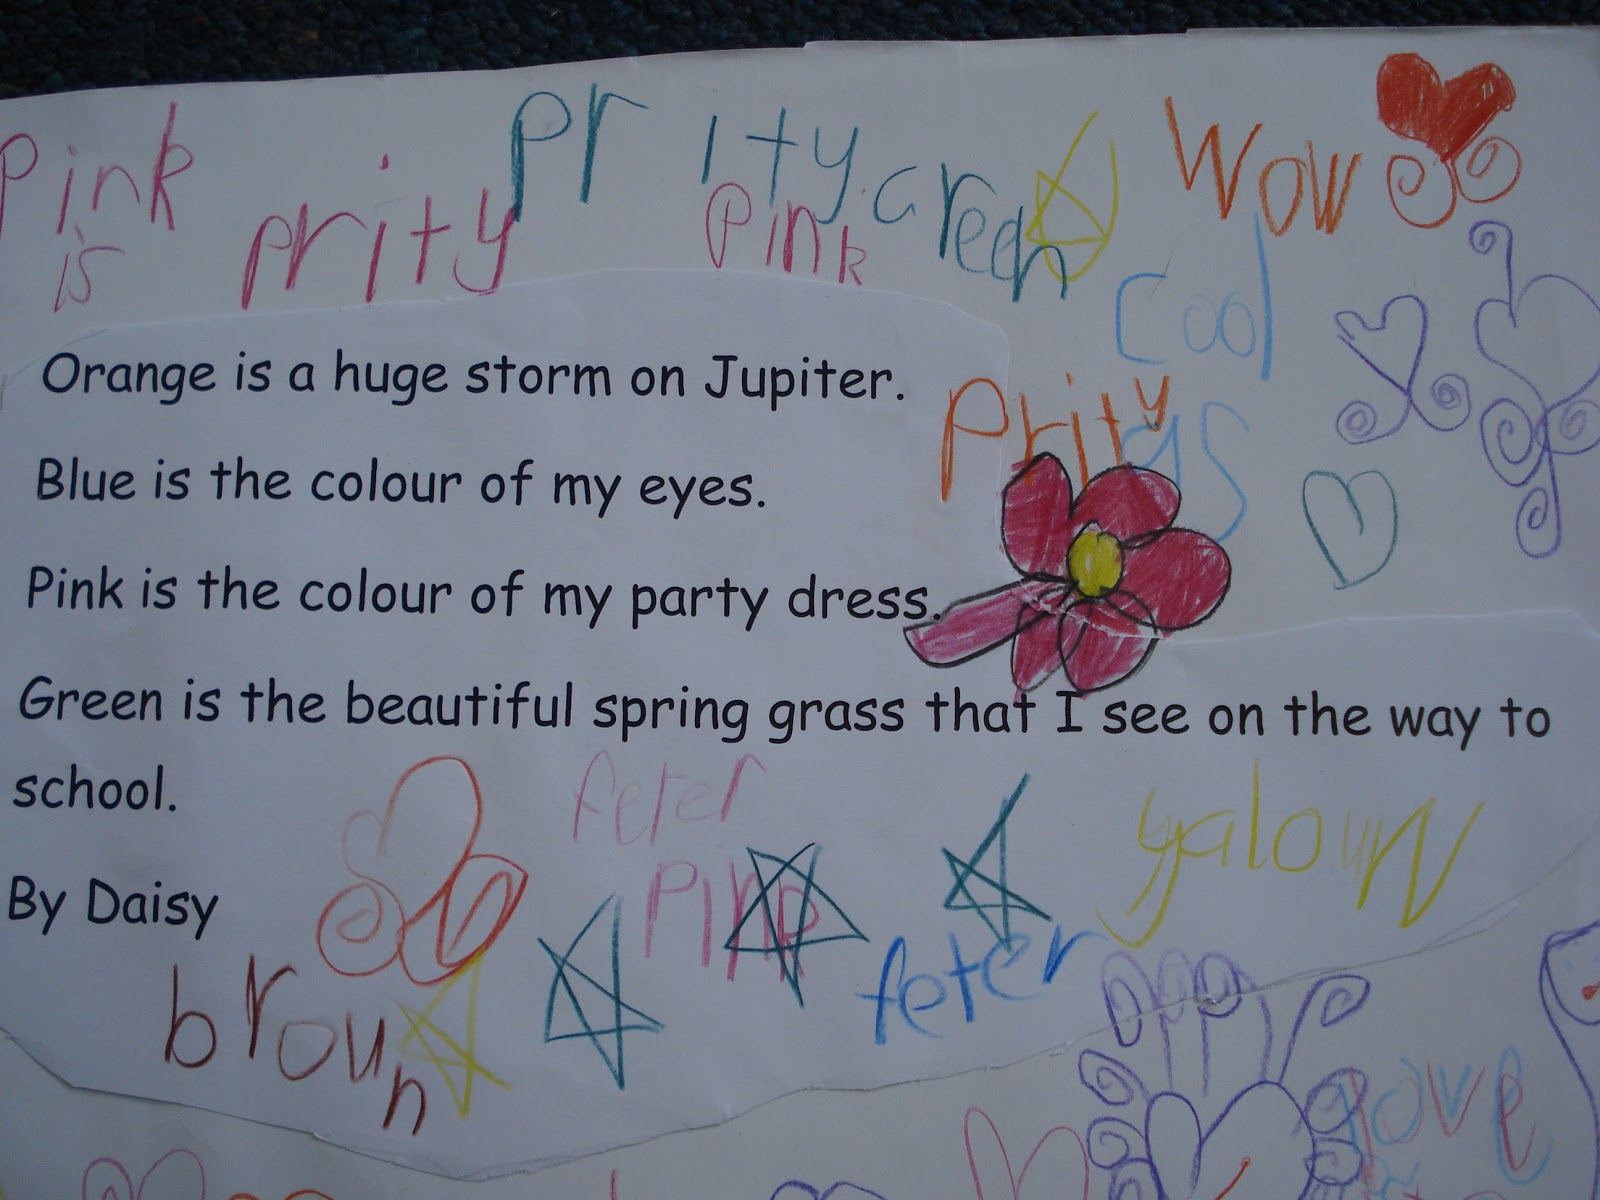 Pink
is
prity
pr ity
Pink
Green
Wow
Cool
Prity
as
Orange is a huge storm on Jupiter.
Blue is the colour of my eyes.
Pink is the colour of my party dress.
Green is the beautiful spring grass that I see on the way to
school.
By Daisy
feter
Pink
feter
yaloun
broun
love